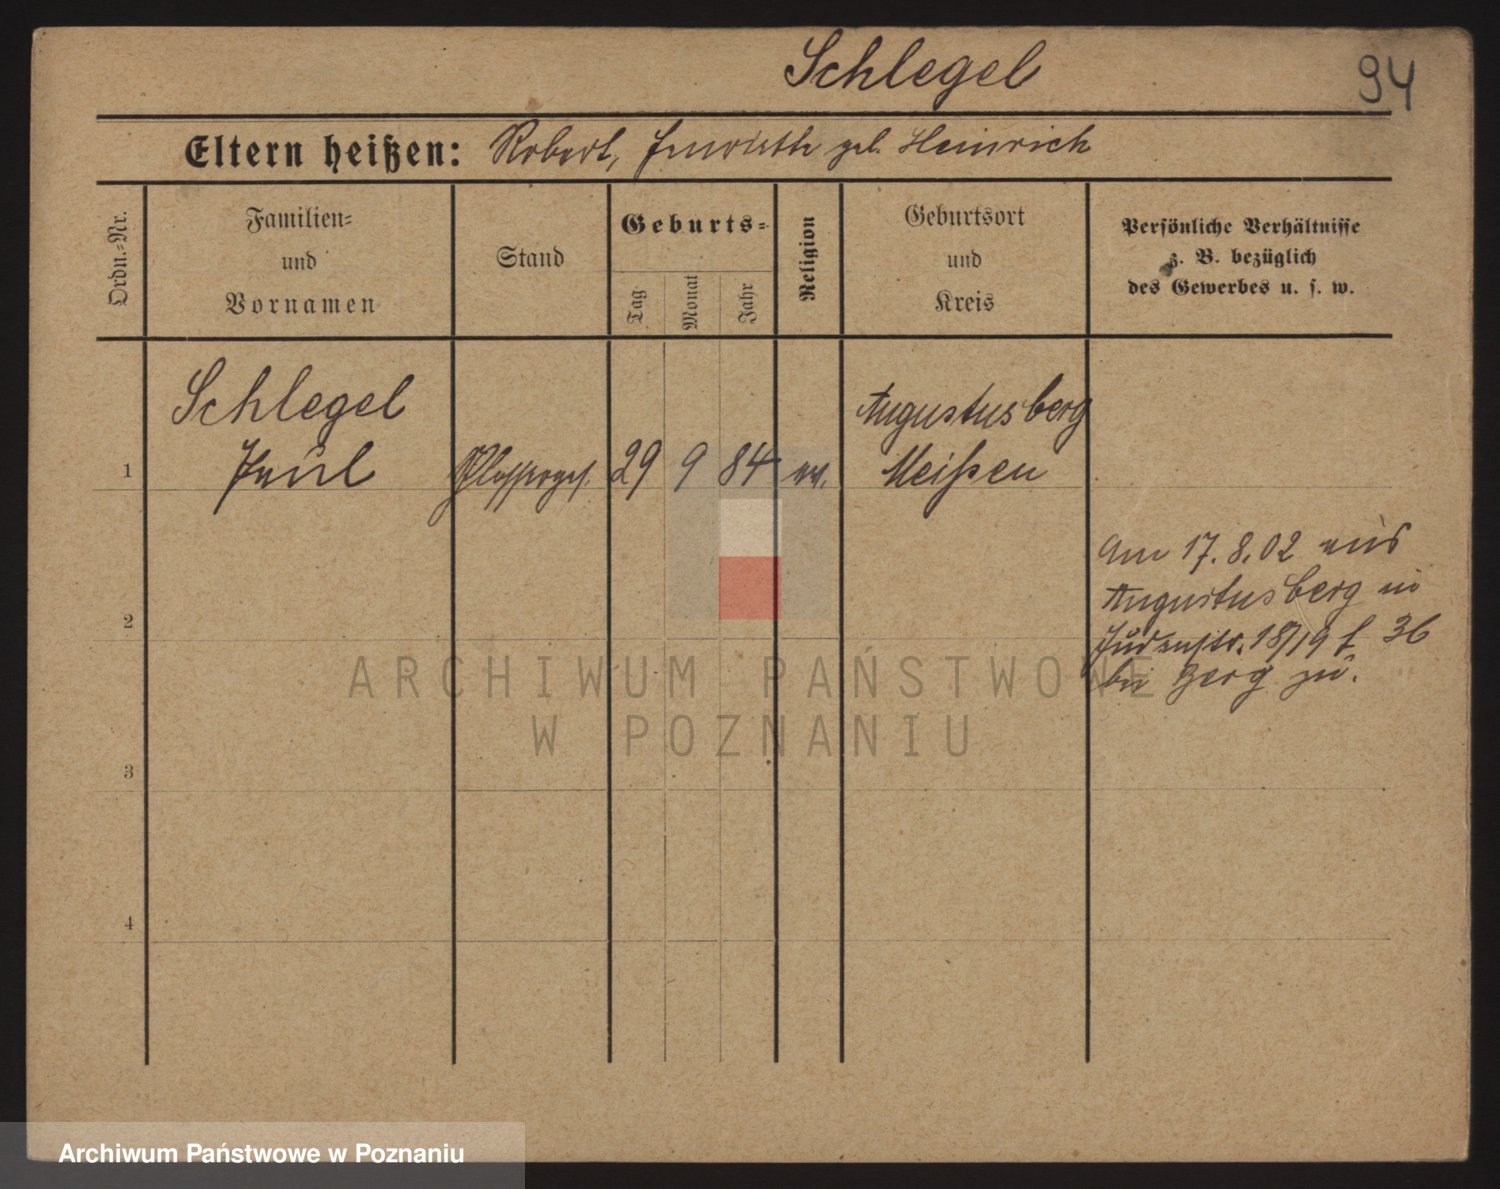 Schlegel
94
Eltern heißen: Robert, geb. Heinrich
Ordn.-Nr.
Familien-
und
Vornamen
Stand
Geburts-
Tag
Monat
Jahr
Religion
Geburtsort
und
Kreis
Persönliche Verhältnisse
z. B. bezüglich
des Gewerbes u. s. w.
Schlegel
Augustusberg
1
Paul
29
9
84
ev.
Meißen
Am 17.8.02 aus
Augustusberg in
2
Judenstr. 18/19 36
bei Berg zu.
ARCHIWUM PAŃSTWOWE
W POZNANIU
3
4
Archiwum Państwowe w Poznaniu